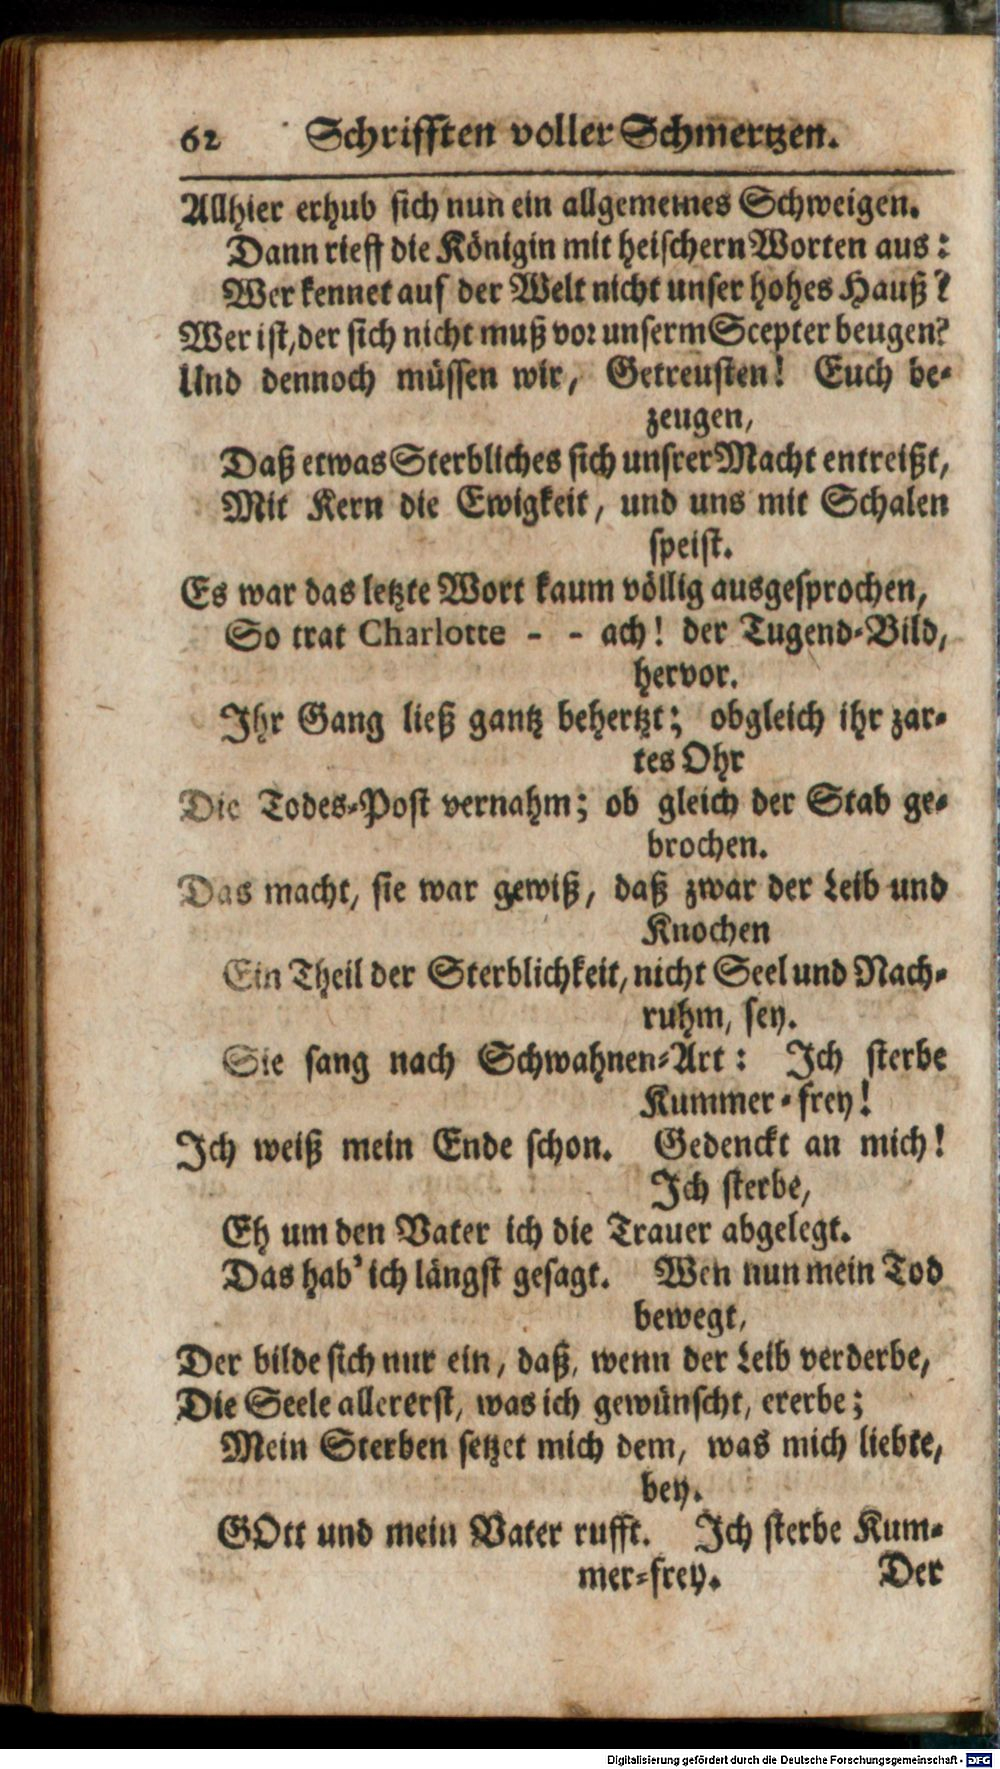 62 Schrifften voller Schmertzen.
Allhier erhub sich nun ein allgemeines Schweigen.
Dann rieff die Königin mit heischern Worten aus:
Wer kennet auf der Welt nicht unser hohes Hauß?
Wer ist, der sich nicht muß vor unserm Scepter beugen?
Und dennoch müssen wir, Getreusten! Euch be-
zeugen,
Daß etwas Sterbliches sich unsrer Macht entreißt,
Mit Kern die Ewigkeit, und uns mit Schalen
speist.
Es war das letzte Wort kaum völlig ausgesprochen,
So trat Charlotte - - ach! der Tugend-Bild,
hervor.
Ihr Gang ließ gantz behertzt; obgleich ihr zar-
tes Ohr
Die Todes-Post vernahm; ob gleich der Stab ge-
brochen.
Das macht, sie war gewiß, daß zwar der Leib und
Knochen
Ein Theil der Sterblichkeit, nicht Seel und Nach-
ruhm, sey.
Sie sang nach Schwahnen-Art: Ich sterbe
Kummer-frey!
Ich weiß mein Ende schon. Gedenckt an mich!
Ich sterbe,
Eh um den Vater ich die Trauer abgelegt.
Das hab' ich längst gesagt. Wen nun mein Tod
bewegt,
Der bilde sich nur ein, daß, wenn der Leib verderbe,
Die Seele allererst, was ich gewünscht, ererbe;
Mein Sterben setzet mich dem, was mich liebte,
bey.
GOtt und mein Vater rufft. Ich sterbe Kum-
mer-frey. Der
Digitalisierung gefördert durch die Deutsche Forschungsgemeinschaft - DFG